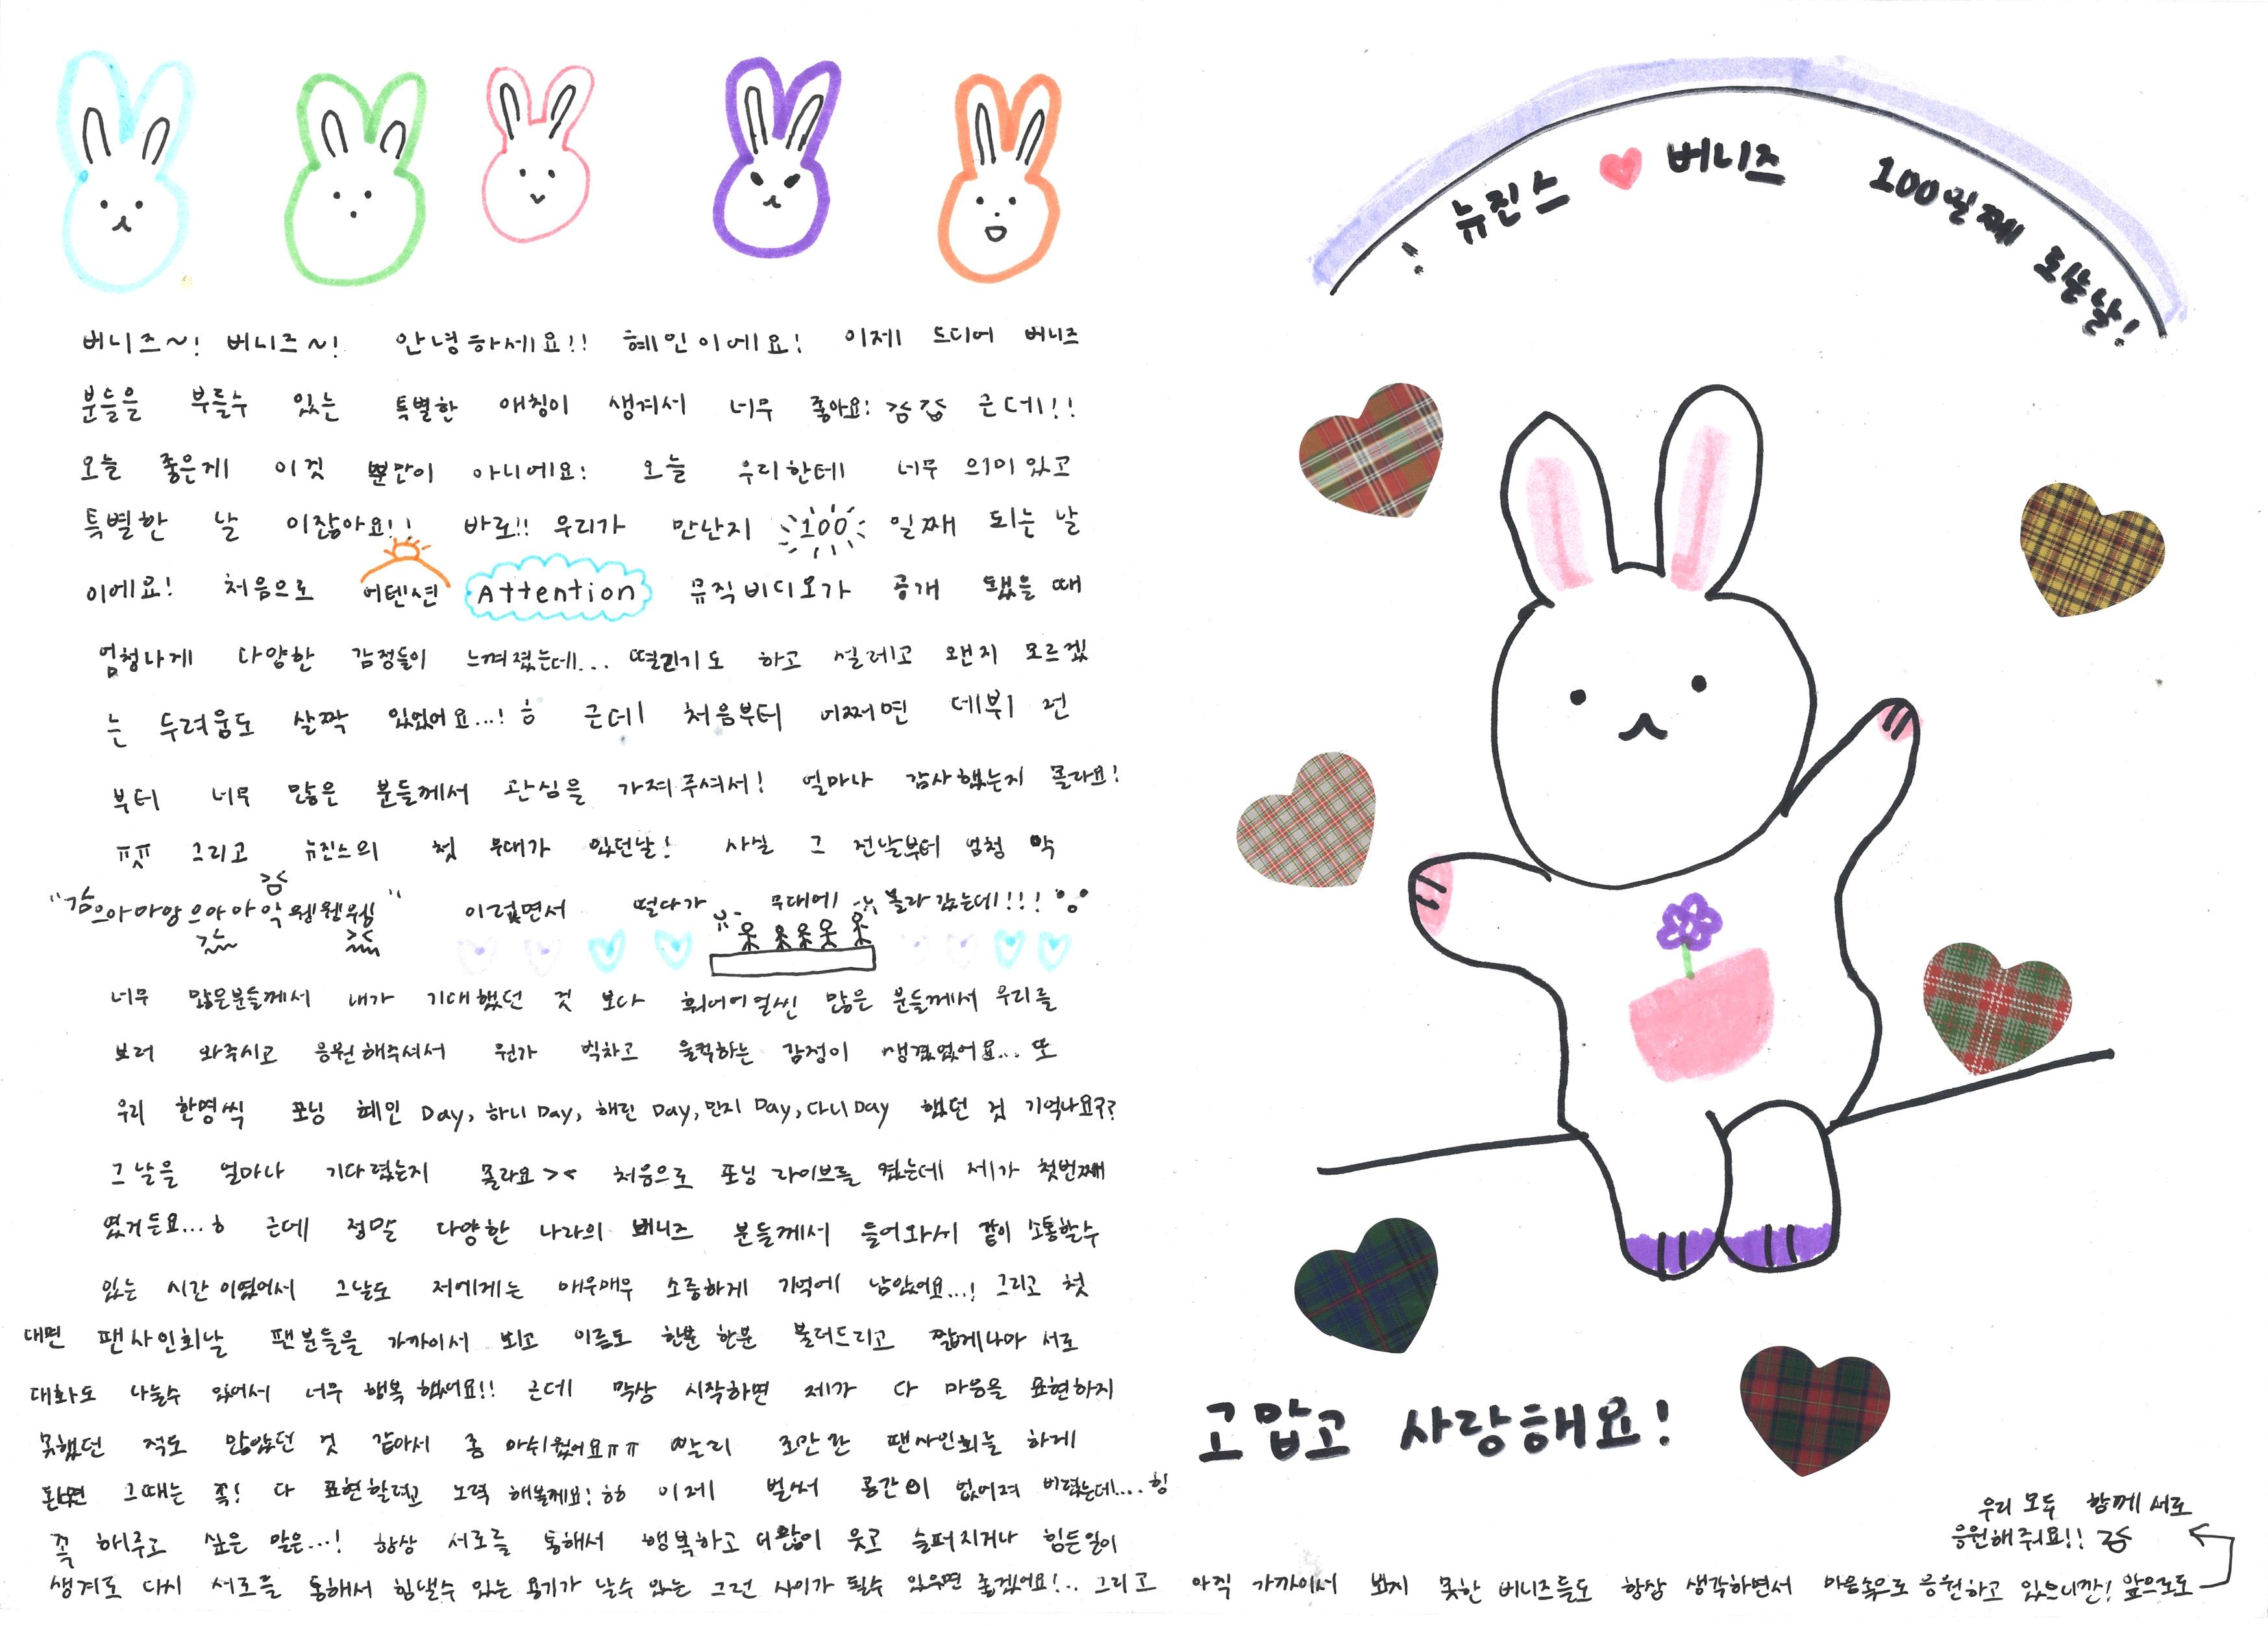 버니즈~! 버니즈~! 안녕하세요!! 혜인이에요! 이제 드디어 버니즈
분들을 부를수 있는 특별한 애칭이 생겨서 너무 좋아요! 근데!!
오늘 좋은게 이것 뿐만이 아니에요! 오늘 우리한테 너무 의미있고
특별한 날 이잖아요!! 바로!! 우리가 만난지 100 일째 되는 날
이에요! 처음으로 어텐션 Attention 뮤직비디오가 공개 됐을 때
엄청나게 다양한 감정들이 느껴졌는데... 떨리기도 하고 설레고 왠지 모르겠
는 두려움도 살짝 있었어요...! ㅎ 근데 처음부터 어쩌면 데뷔 전
부터 너무 많은 분들께서 관심을 가져주셔서! 얼마나 감사했는지 몰라요!
ㅠㅠ 그리고 뉴진스의 첫 무대가 있던날! 사실 그 전날부터 엄청 막
"으아마앙으앙아악웽웽웽" 이럼면서 떨다가 무대에 올라갔는데!!!
너무 많은분들께서 내가 기대했던 것 보다 훠어어얼씬 많은 분들께서 우리를
보러 와주시고 응원해주셔서 뭔가 벅차고 울컥하는 감정이 생겼었어요... 또
우리 한명씩 포닝 혜인 Day, 하니 Day, 해린 Day, 민지 Day, 다니 Day 했던 것 기억나요??
그날을 얼마나 기다렸는지 몰라요>< 처음으로 포닝 라이브를 켰는데 제가 첫번째
였거든요...ㅎ 근데 정말 다양한 나라의 버니즈 분들께서 들어와서 같이 소통할수
있는 시간이였어서 그날도 저에게는 매우매우 소중하게 기억에 남았어요...! 그리고 첫
대면 팬사인회날 팬분들을 가까이서 뵈고 이름도 한분 한분 불러드리고 짧게나마 서로
대화도 나눌수 있어서 너무 행복했어요!! 근데 막상 시작하면 제가 다 마음을 표현하지
못했던 적도 많았던 것 같아서 좀 아쉬웠어요ㅠㅠ 빨리 조만간 팬사인회를 하게
된다면 그때는 꼭! 다 표현할려고 노력 해볼게요!ㅎㅎ 이제 벌써 공간이 없어져 버렸는데.... 힝
꼭 해주고 싶은 말은...! 항상 서로를 통해서 행복하고 더많이 웃고 슬퍼지거나 힘든일이
생겨도 다시 서로를 통해서 힘낼수 있는 용기가 날수 있는 그런 사이가 될수 있으면 좋겠어요!.. 그리고 아직 가까이서 보지 못한 버니즈들도 항상 생각하면서 마음속으로 응원하고 있으니깐! 앞으로도
우리 모두 함께 서로
응원해줘요!!
뉴진스 ♥ 버니즈 100일째 되는날!
고맙고 사랑해요!